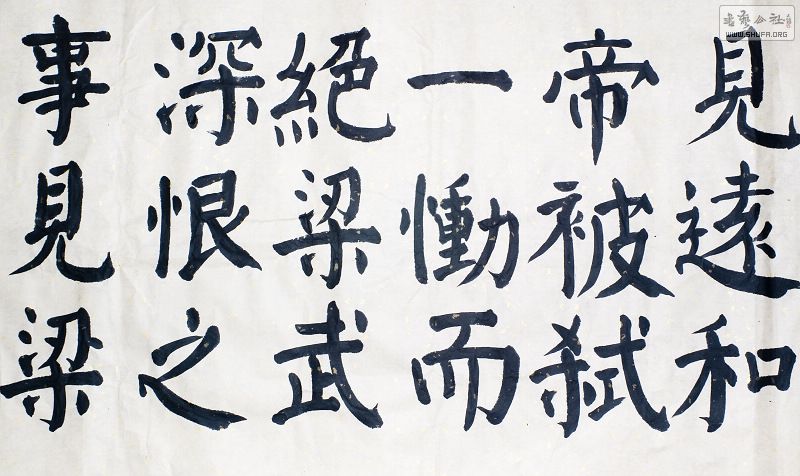 見遠和
帝被弑
一慟而
絕梁武
深恨之
事見梁
书艺公社
WWW.SHUFA.ORG